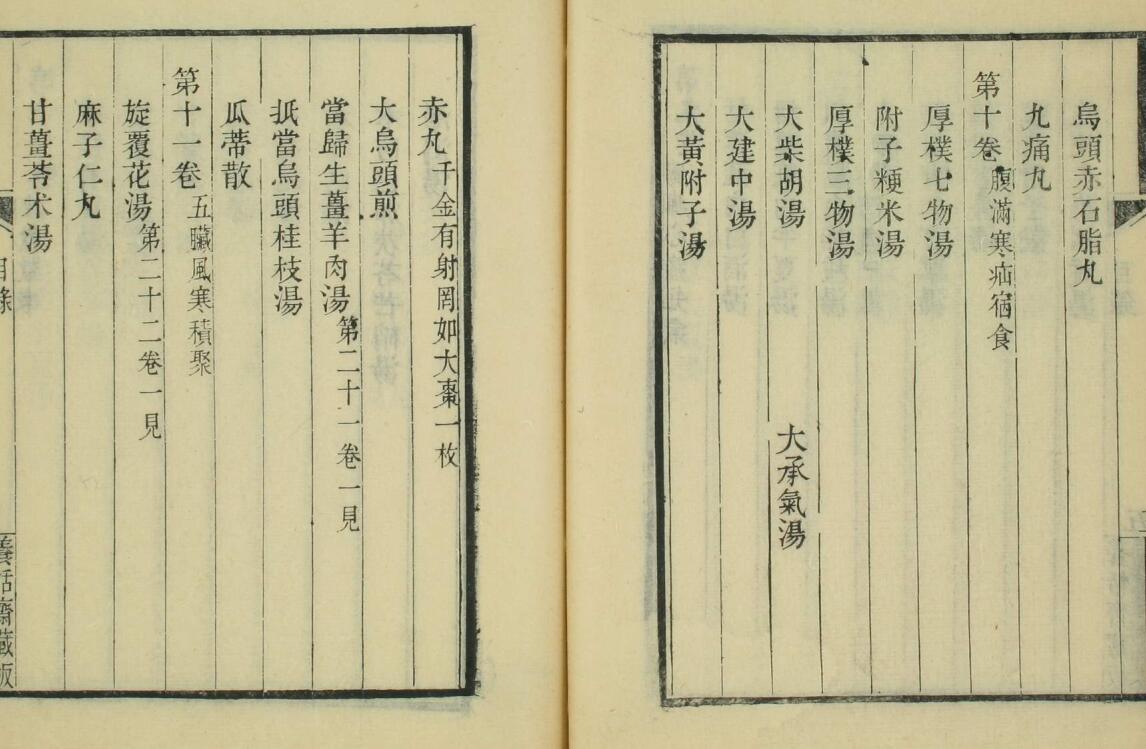 烏頭赤石脂丸
九痛丸
第十卷 腹滿寒疝宿食
厚樸七物湯
附子粳米湯
厚樸三物湯
大柴胡湯 大承氣湯
大建中湯
大黃附子湯
赤丸 千金有射罔如大棗一枚
大烏頭煎
當歸生薑羊肉湯 第二十一卷一見
抵當烏頭桂枝湯
瓜蒂散
第十一卷 五臟風寒積聚
旋覆花湯 第二十二卷一見
麻子仁丸
甘薑苓术湯
目錄
養恬齋藏板